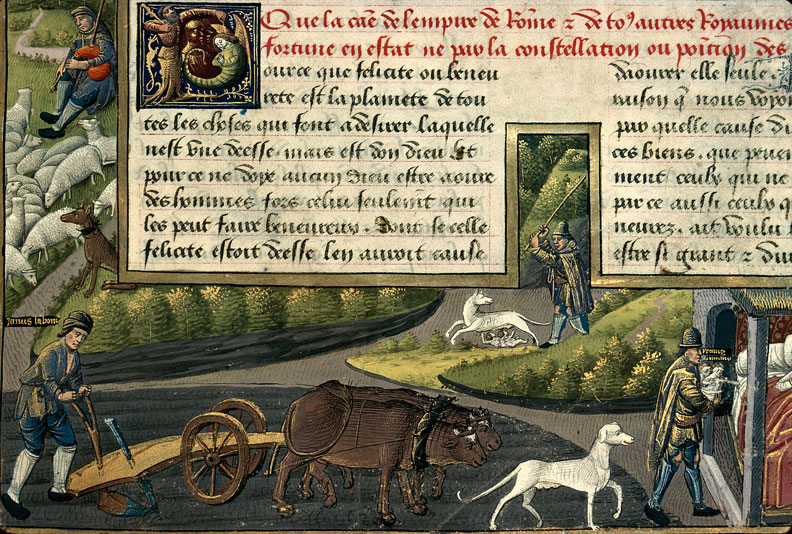 Que la cãe de lempire de Rõme ⁊ de to9 autres Royaumes
fortune en estat ne par la constellation ou posicion des
ource que felicite ou beneu
rete est la planiete de tou
tes les choses qui font a desirer laquelle
nest vne deesse mais est don dieu Et
pour ce ne doye aucun dieu estre aoure
des hommes fors celui seulemẽt qui
les peut faire beneureux. Dont se celle
felicite estoit deesse len auroit cause
daourer elle seule.
raison q̃ nous voyon
par quelle cause di
ces biens. que peuen
ment ceulx qui ne
par ce aussi ceulx q
neurez. ait voulu
estre si grant ⁊ du